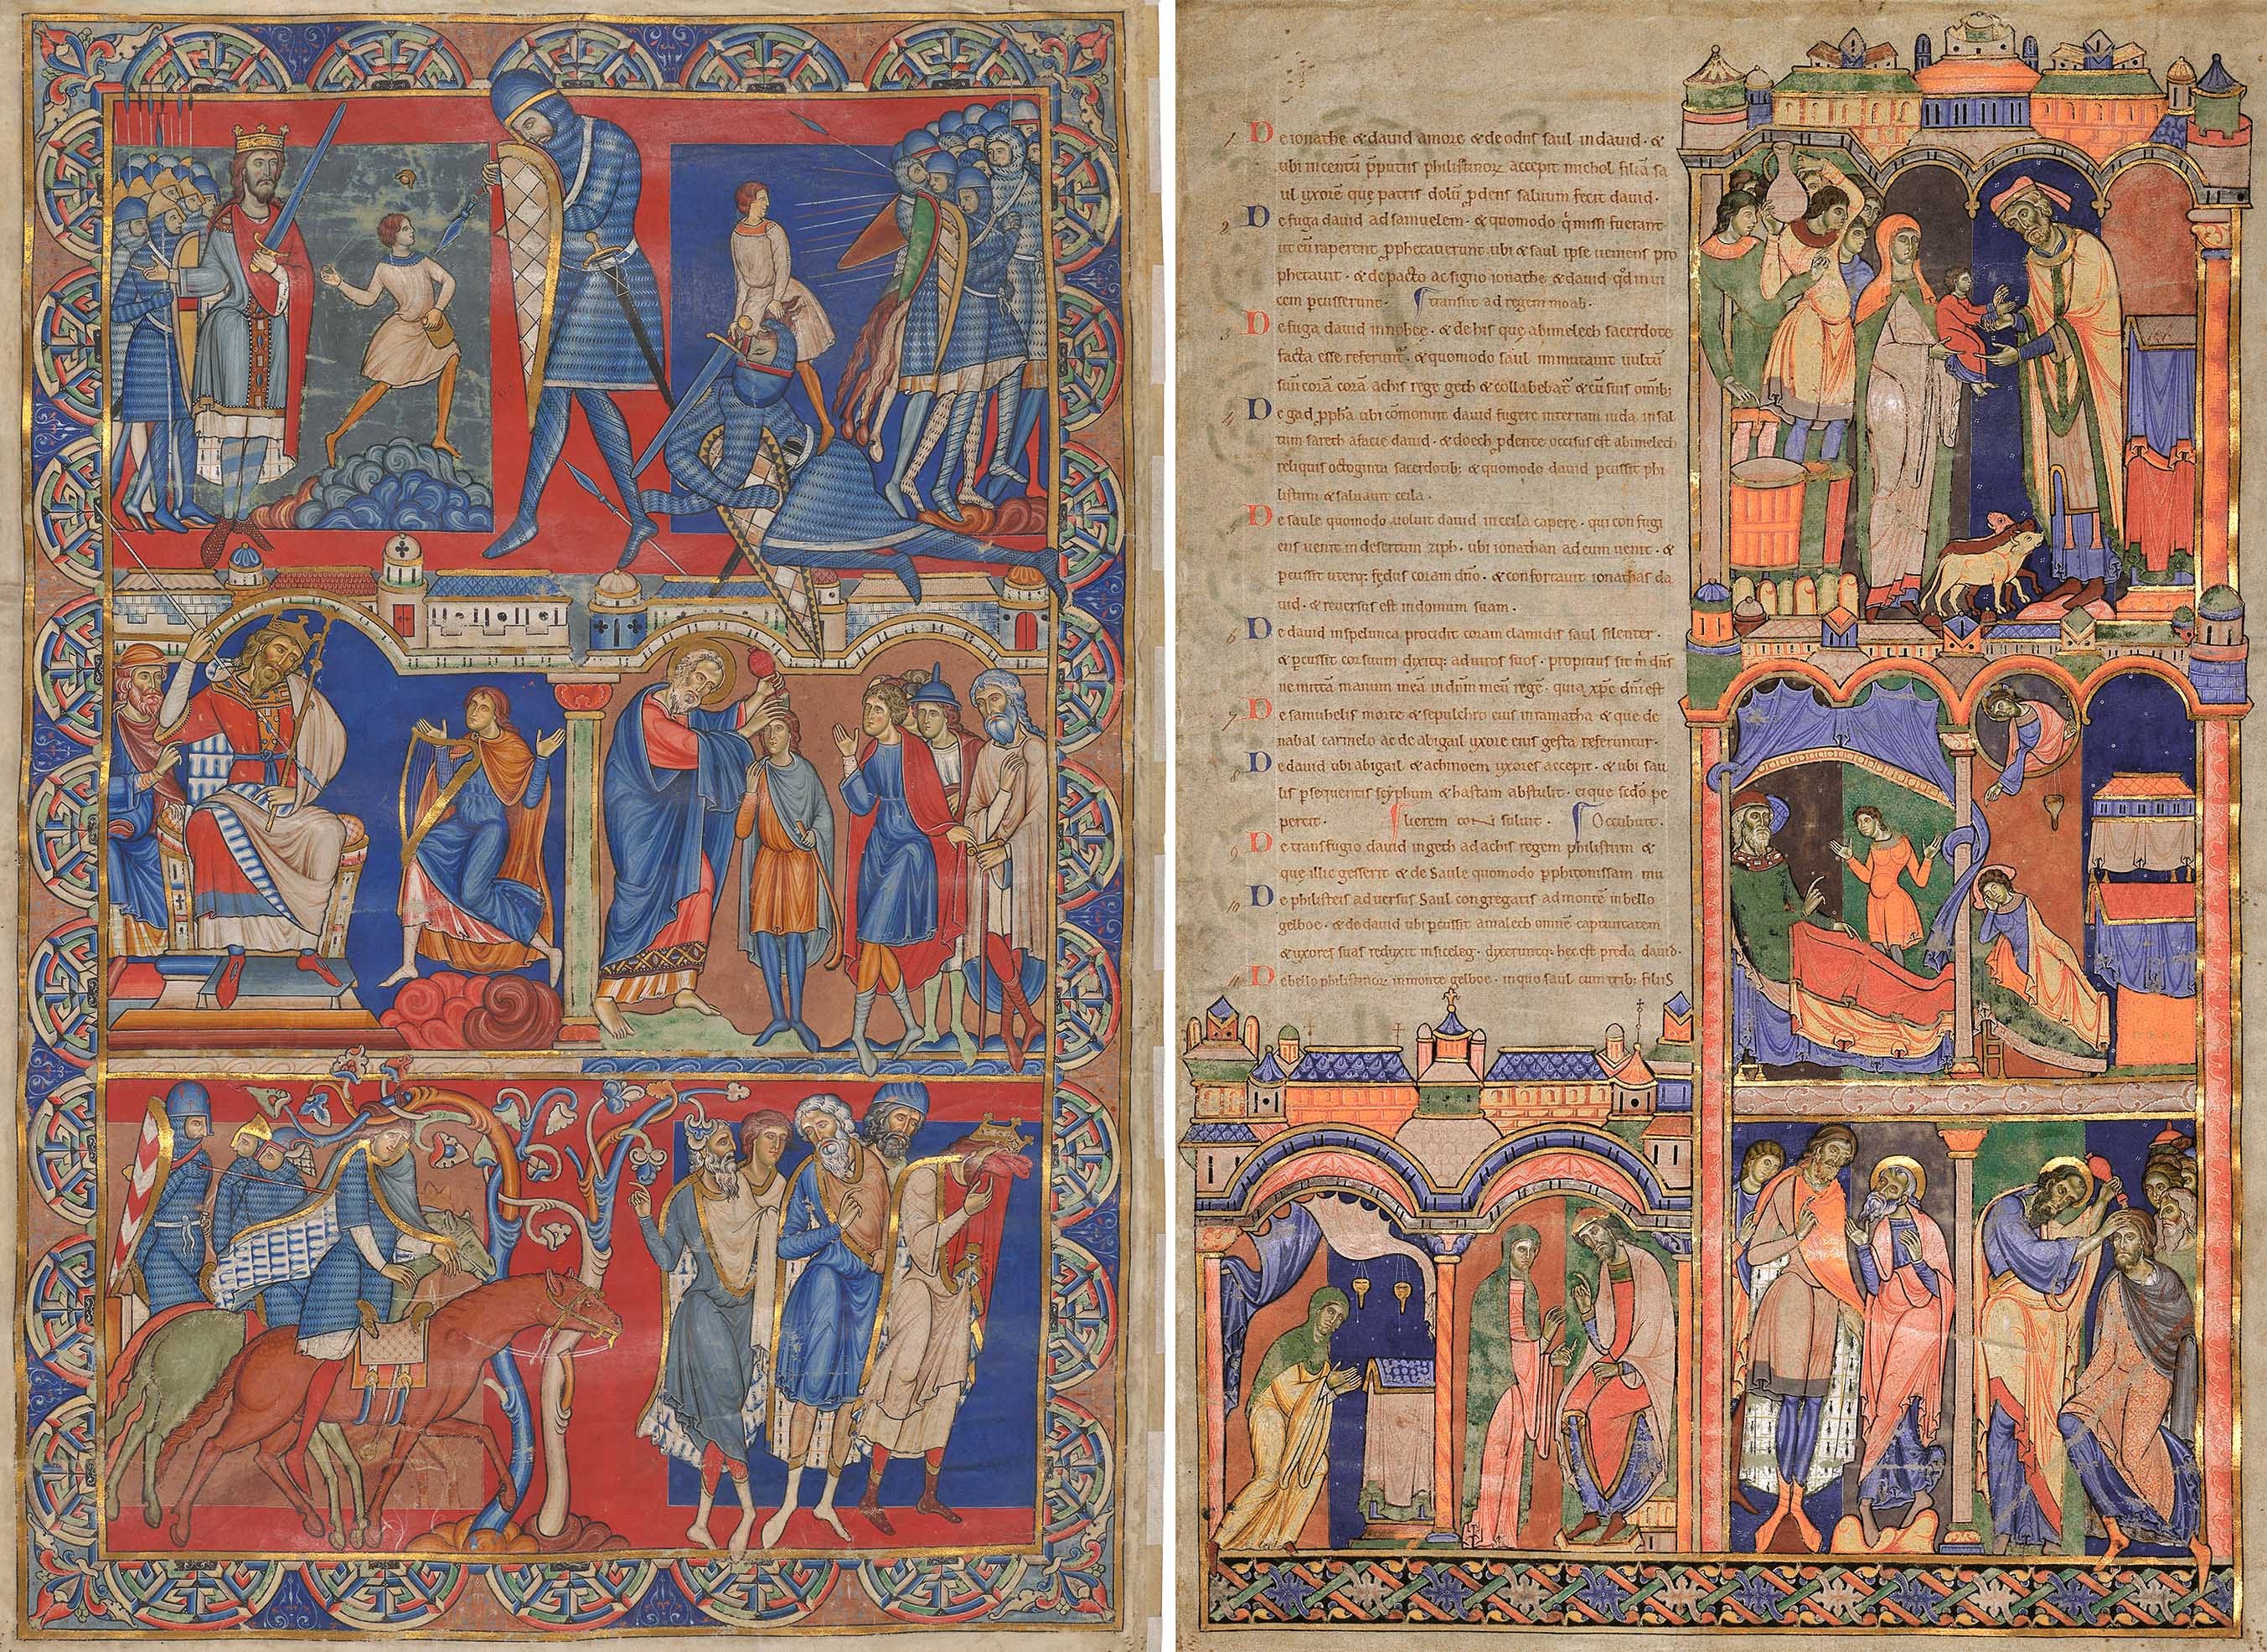 1 De ionathe & david amore & de odiis saul in david · &
ubi in centū p̄putiis philistinoꝝ accepit michol filiā sa
ul uxorē que patris dolū p̄dens saluum fecit david ·
2 De fuga david ad samuelem · & quomodo q̇ missi fuerant
ut eū raperent p̱phetauerunt · ubi & saul ipse ueniens pro
phetauit · & de pacto ac signo ionathe & david qd̄ in ui
cem pcusserunt · transiit ad regem moab ·
3 De fuga david in nobee · & de his quę abimelech sacerdote
facta esse referunt̄ · & quomodo saul immutauit uultū
suū corā corā achis rege geth & collabebat̄ & cū suis omib;
4 De gad p̱pha ubi cōmonuit david fugere in terram iuda in sal
tum sareth a facie david · & doech p̱dente occisus est abimelech
reliquis octoginta sacerdotib; & quomodo david pcussit phi
listiim & saluauit ceila ·
De saule quomodo uoluit david in ceila capere · qui con fugi
ens uenit in desertum ziph · ubi ionathan ad eum uenit · &
pcussit uterq; fędus coram dn̄o · & confortauit ionathas da
uid · & reuersus est in domum suam ·
6 De david in spelunca p̱cidit coram clamidis saul silenter ·
& pcussit cor suum dixitq; ad uiros suos · propitius sit m̄ dn̄s
ne mittā manum meā in dn̄m meū regē · quia xp̄c dn̄i est
7 De samuhelis morte & sepulchro eius in ramatha & que de
nabal carmelo ac de abigail uxore eius gesta referuntur ·
8 De david ubi abigail & achinoem uxores accepit · & ubi sau
lis psequentis scyphum & hastam abstulit · eique sedō pe
percit · lierem cōsuluit · Occubuit ·
9 De transfugio david in geth ad achis regem philistiim &
quę illic gesserit & de Saule quomodo p̱ phitonissam mu
10 De philisteis aduersus Saul congregatis ad montē in bello
gelboe · & de david ubi pcussit amalech omnē captiuitatem
& uxores suas reduxit in siceleg · dixeruntq; hec est preda david ·
11 De bello philistinoꝝ in monte gelboe · in quo saul cum trib; filiis